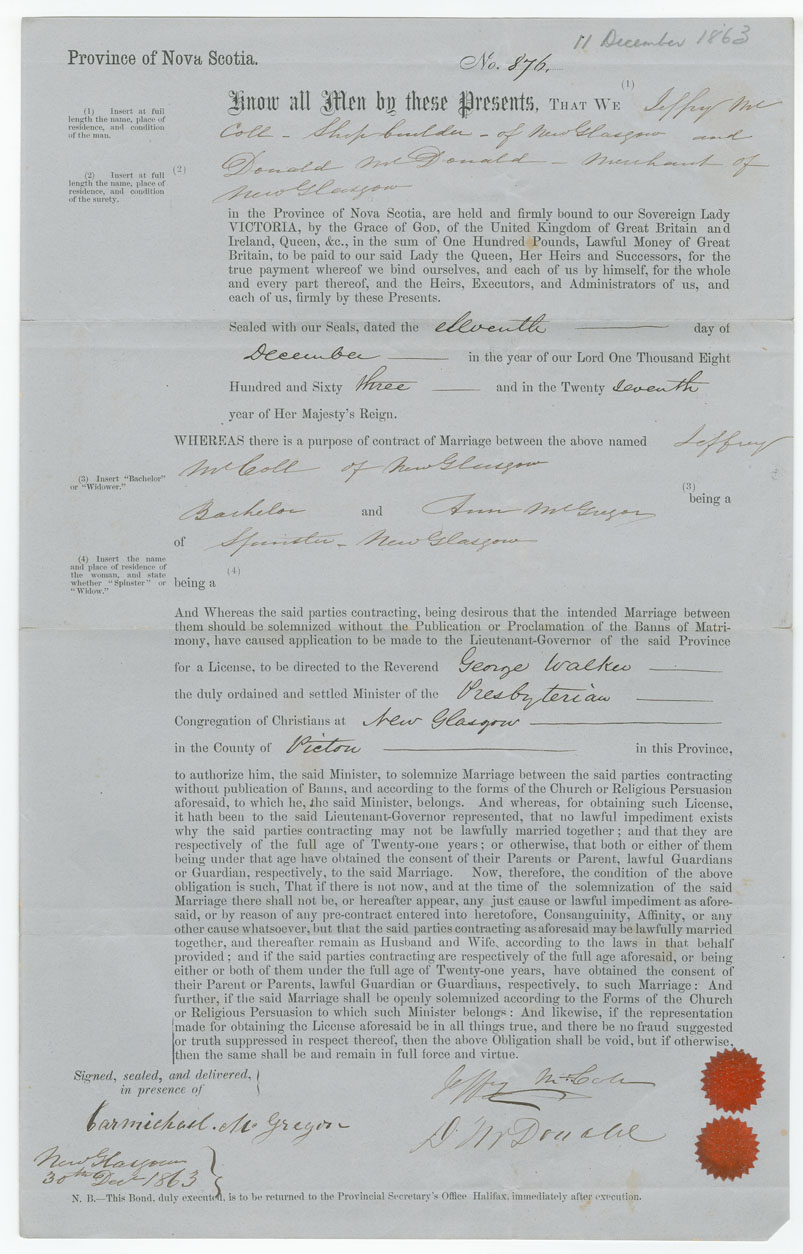 11 December 1863
Province of Nova Scotia.
No. 876.
(1)
Know all Men by these Presents, THAT WE Jeffry Mc
Coll - Ship builder - of New Glasgow and
(2)
Donald McDonald - Merchant of
New Glasgow
(1) Insert at full
length the name, place of
residence, and condition
of the man.
(2) Insert at full
length the name, place of
residence, and condition
of the surety.
in the Province of Nova Scotia, are held and firmly bound to our Sovereign Lady
VICTORIA, by the Grace of GOD, of the United Kingdom of Great Britain and
Ireland, Queen, &c., in the sum of One Hundred Pounds, Lawful Money of Great
Britain, to be paid to our said Lady the Queen, Her Heirs and Successors, for the
true payment whereof we bind ourselves, and each of us by himself, for the whole
and every part thereof, and the Heirs, Executors, and Administrators of us, and
each of us, firmly by these Presents.
Sealed with our Seals, dated the eleventh day of
December in the year of our Lord One Thousand Eight
Hundred and Sixty three and in the Twenty seventh
year of Her Majesty's Reign.
WHEREAS there is a purpose of contract of Marriage between the above named Jeffrey
McColl of New Glasgow
(3) Insert "Bachelor"
or "Widower."
(3)
being a
Bachelor and Ann McGregor
of Spinster - New Glasgow
(4) Insert the name
and place of residence of
the woman, and state
whether "Spinster" or
"Widow."
(4)
being a
And Whereas the said parties contracting, being desirous that the intended Marriage between
them should be solemnized without the Publication or Proclamation of the Banns of Matri-
mony, have caused application to be made to the Lieutenant-Governor of the said Province
for a License, to be directed to the Reverend George Walker
the duly ordained and settled Minister of the Presbyterian
Congregation of Christians at New Glasgow
in the County of Pictou in this Province,
to authorize him, the said Minister, to solemnize Marriage between the said parties contracting
without publication of Banns, and according to the forms of the Church or Religious Persuasion
aforesaid, to which he, the said Minister, belongs. And whereas, for obtaining such License,
it hath been to the said Lieutenant-Governor represented, that no lawful impediment exists
why the said parties contracting may not be lawfully married together; and that they are
respectively of the full age of Twenty-one years; or otherwise, that both or either of them
being under that age have obtained the consent of their Parents or Parent, lawful Guardians
or Guardian, respectively, to the said Marriage. Now, therefore, the condition of the above
obligation is such, That if there is not now, and at the time of the solemnization of the said
Marriage there shall not be, or hereafter appear, any just cause or lawful impediment as afore-
said, or by reason of any pre-contract entered into heretofore, Consanguinity, Affinity, or any
other cause whatsoever, but that the said parties contracting as aforesaid may be lawfully married
together, and thereafter remain as Husband and Wife, according to the laws in that behalf
provided; and if the said parties contracting are respectively of the full age aforesaid, or being
either or both of them under the full age of Twenty-one years, have obtained the consent of
their Parent or Parents, lawful Guardian or Guardians, respectively, to such Marriage: And
further, if the said Marriage shall be openly solemnized according to the Forms of the Church
or Religious Persuasion to which such Minister belongs: And likewise, if the representation
made for obtaining the License aforesaid be in all things true, and there be no fraud suggested
or truth suppressed in respect thereof, then the above Obligation shall be void, but if otherwise,
then the same shall be and remain in full force and virtue.
Signed, sealed, and delivered,
in presence of
Jeffry McColl
Carmichael. McGregor
D McDonald
New Glasgow
30th Decr 1863
N. B.—This Bond, duly executed, is to be returned to the Provincial Secretary's Office Halifax, immediately after execution.